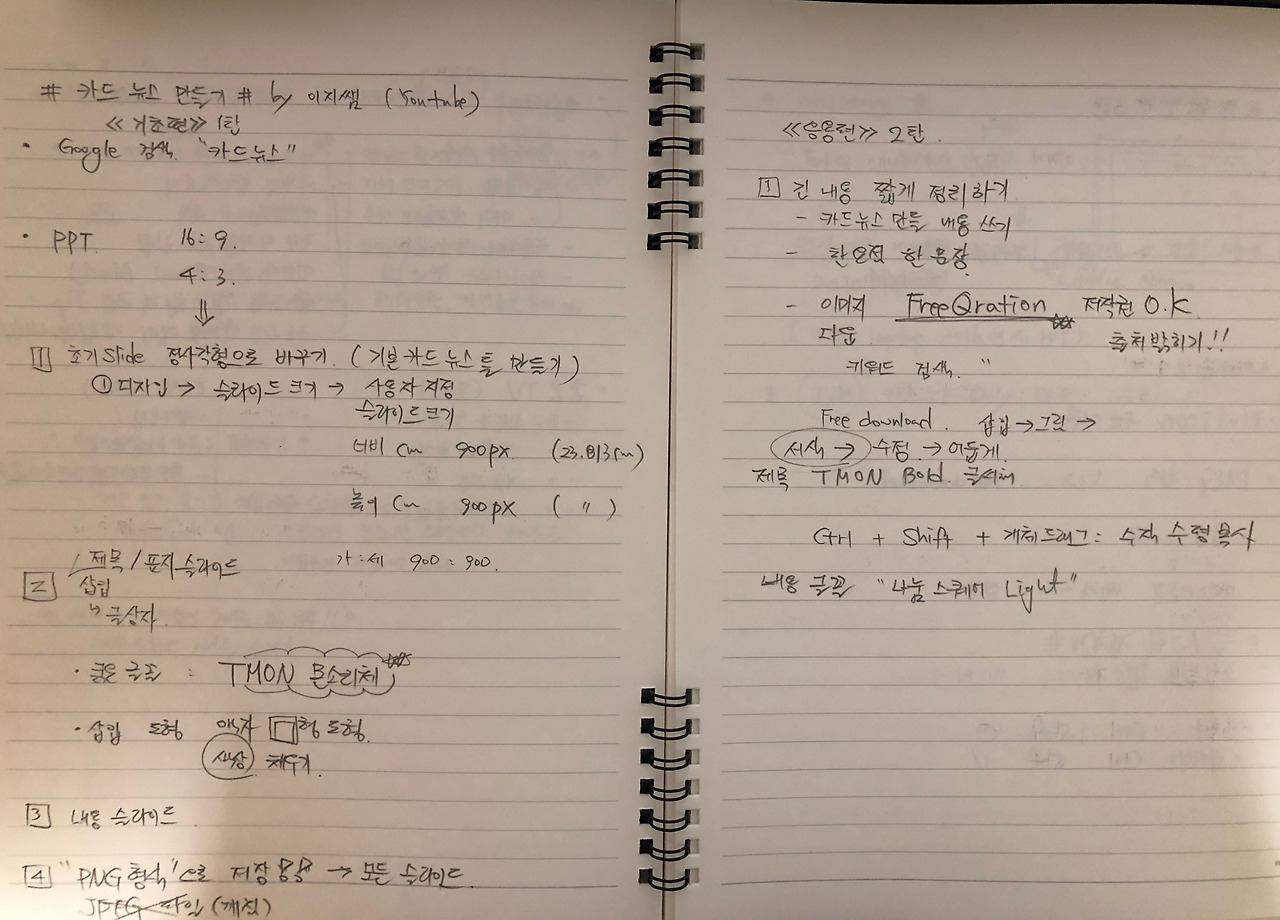 # 카드 뉴스 만들기 # by 이지쌤 (Youtube)
<<기초편>> 1탄
• Google 검색. "카드뉴스"
• PPT. 16:9.
4:3.
⇓
1 초기 Slide 정사각형으로 바꾸기. (기본 카드 뉴스 틀 만들기)
① 디자인 → 슬라이드 크기 → 사용자 지정
슬라이드 크기
너비 cm 900px (23.813cm)
높이 cm 900px ( " )
제목 / 표지 슬라이드 가:세 900:900.
2 삽입
↳ 글상자.
• 굵은 글꼴 : TMON 몬소리체
• 삽입 도형 액자 □형 도형.
색상 채우기.
3 내용 슬라이드
4 "PNG 형식"으로 저장 → 모든 슬라이드.
JPEG 파일 (깨짐)
<<응용편>> 2탄.
1 긴 내용 짧게 정리하기
- 카드뉴스 만들 내용 쓰기
- 한 문장.
- 이미지 FreeQration 저작권 O.K
다운 출처 밝히기!!
키워드 검색. "
Free download. 삽입 → 그림 →
서식 → 수정. → 어둡게.
제목 TMON Bold. 글씨체
Ctrl + Shift + 개체드래그: 수직 수평 복사
내용 글꼴 "나눔 스퀘어 Light"